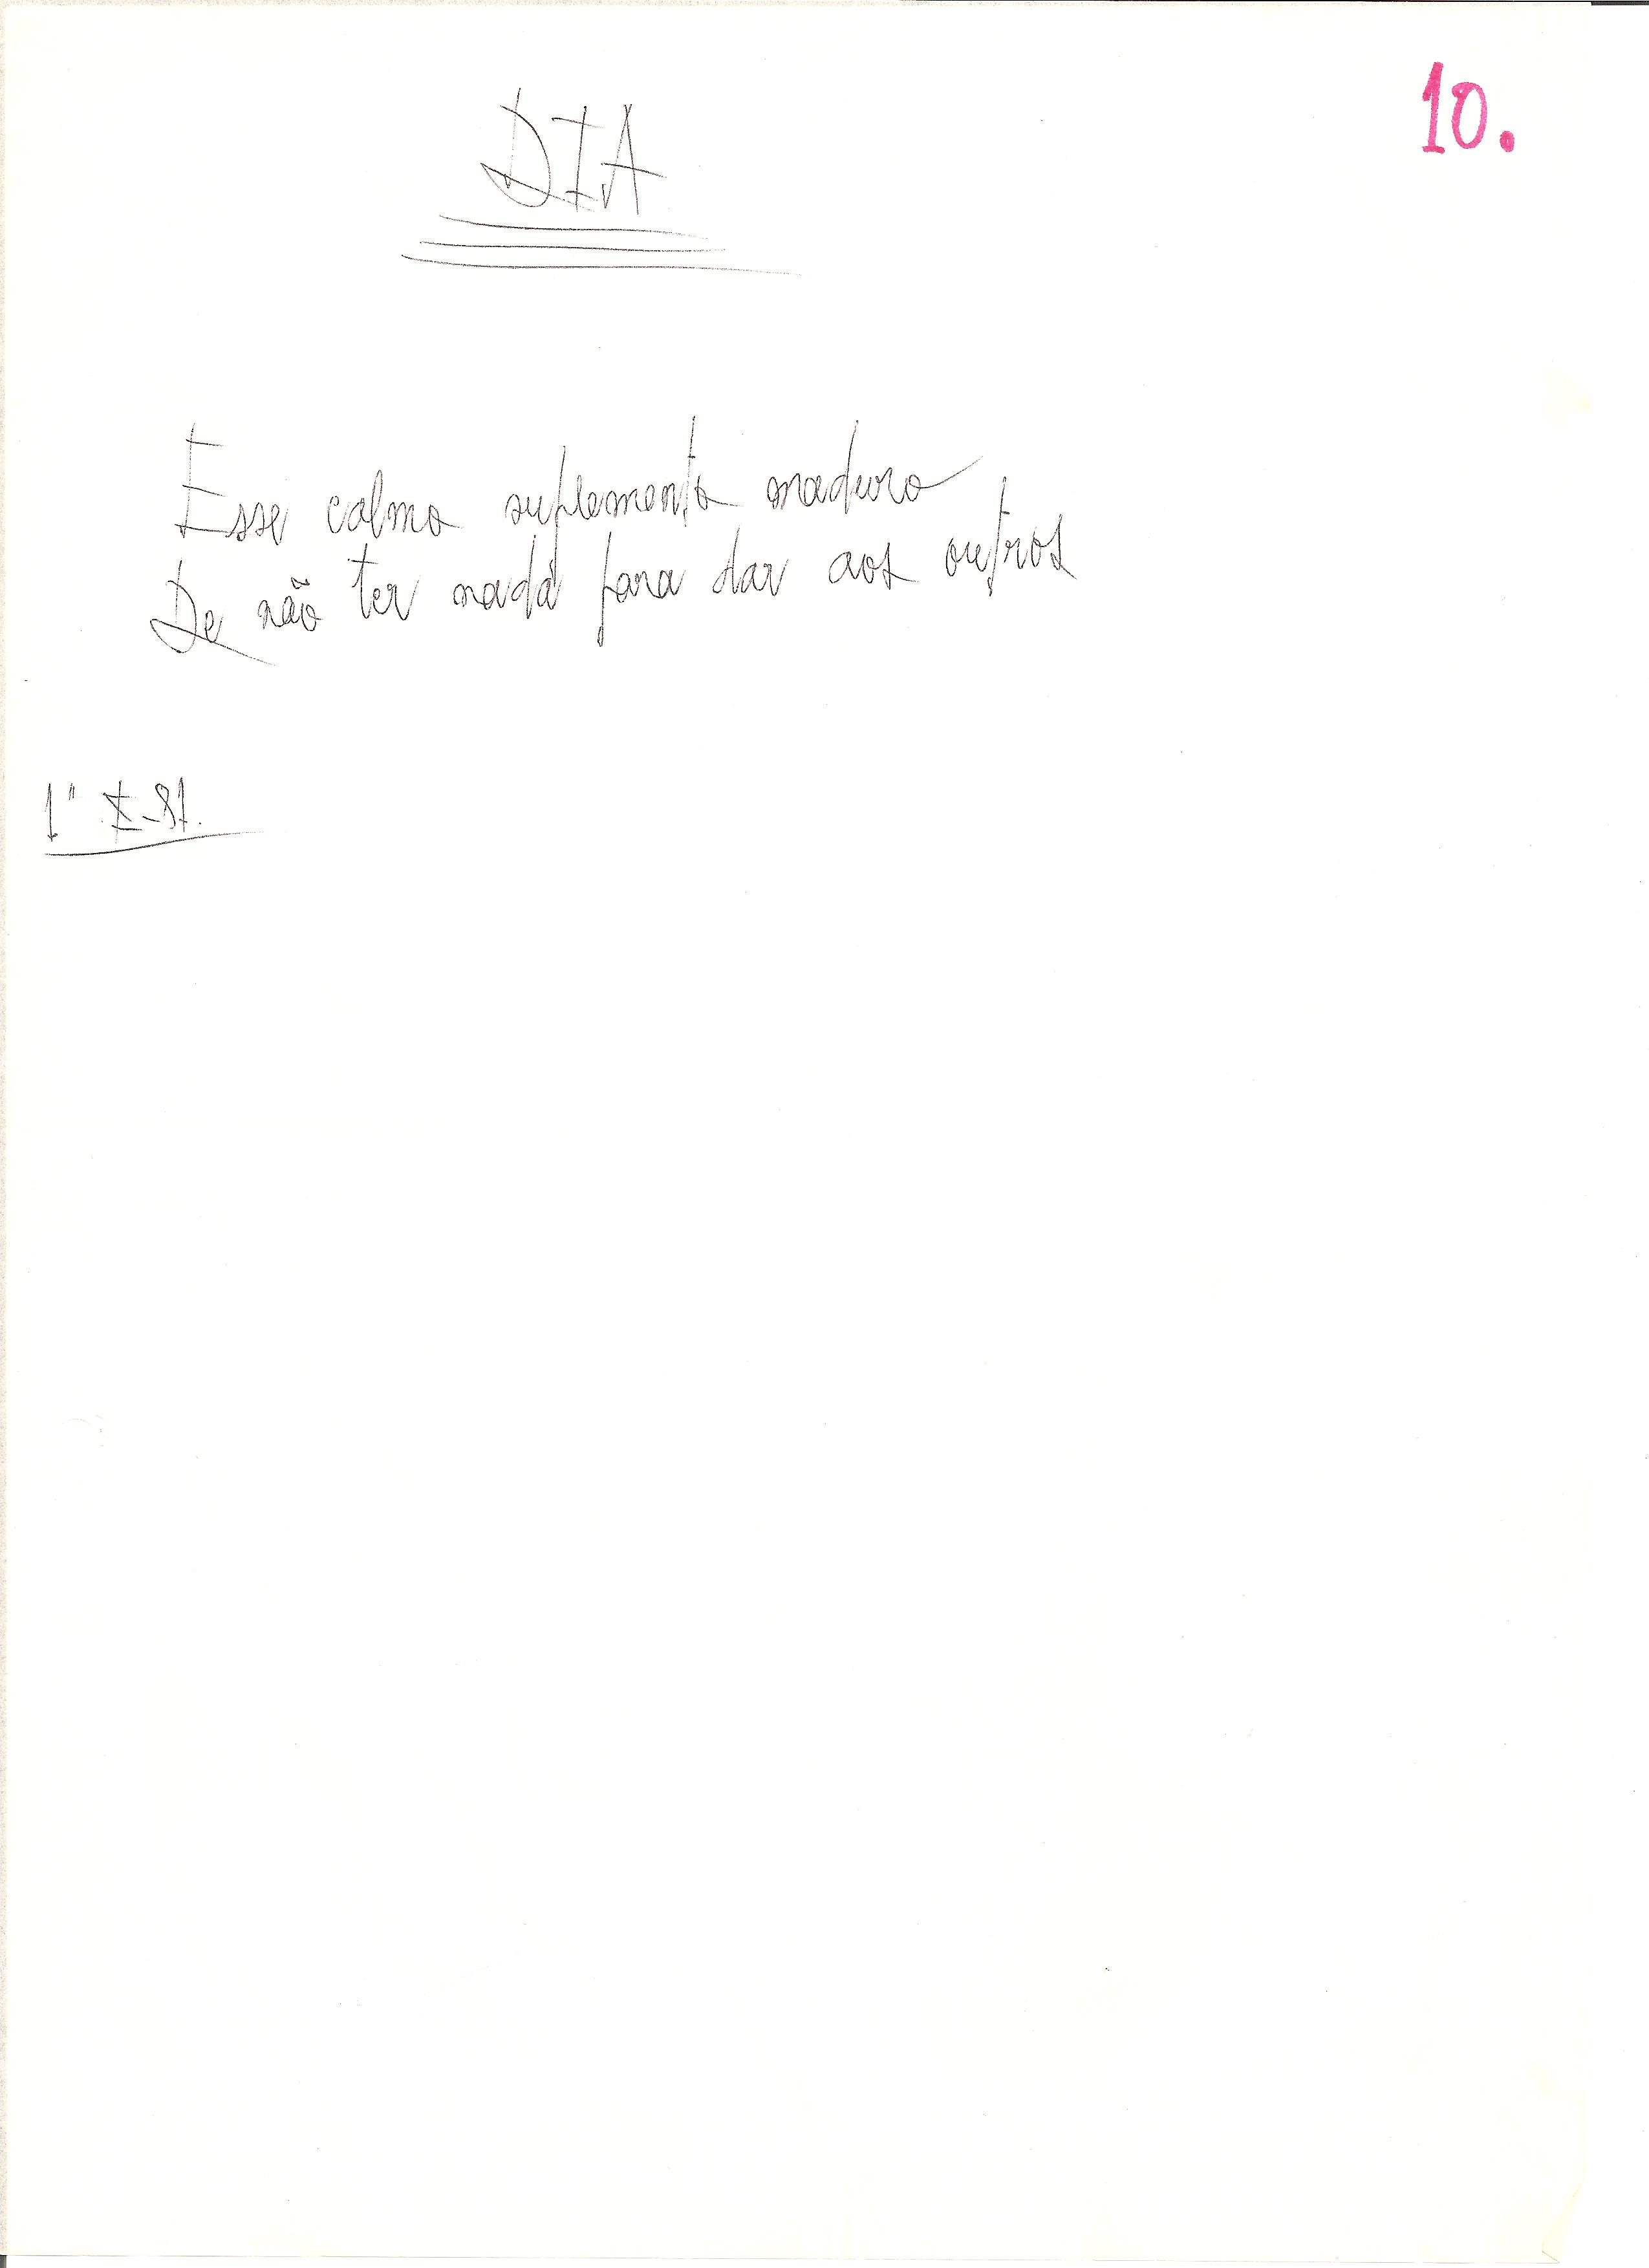 10.
DIA
Esse calmo suplemento maduro
De não ter nada para dar aos outros